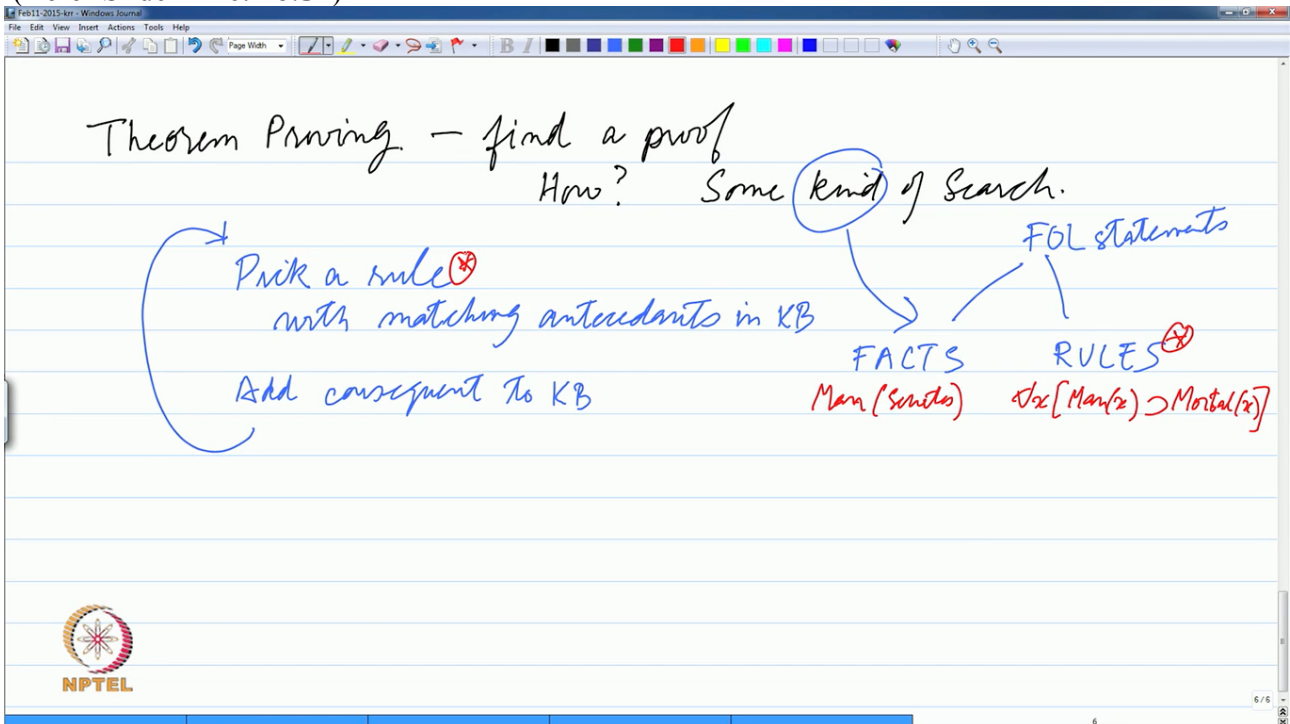 Feb11-2015-krr - Windows Journal
File Edit View Insert Actions Tools Help
Page Width
Theorem Proving - find a proof
How? Some kind of Search.
FOL statements
Pick a rule *
with matching antecedants in KB
FACTS RULES *
Add consequent to KB
Man(Socrates) ∀x[Man(x) ⊃ Mortal(x)]
NPTEL
6/6
6